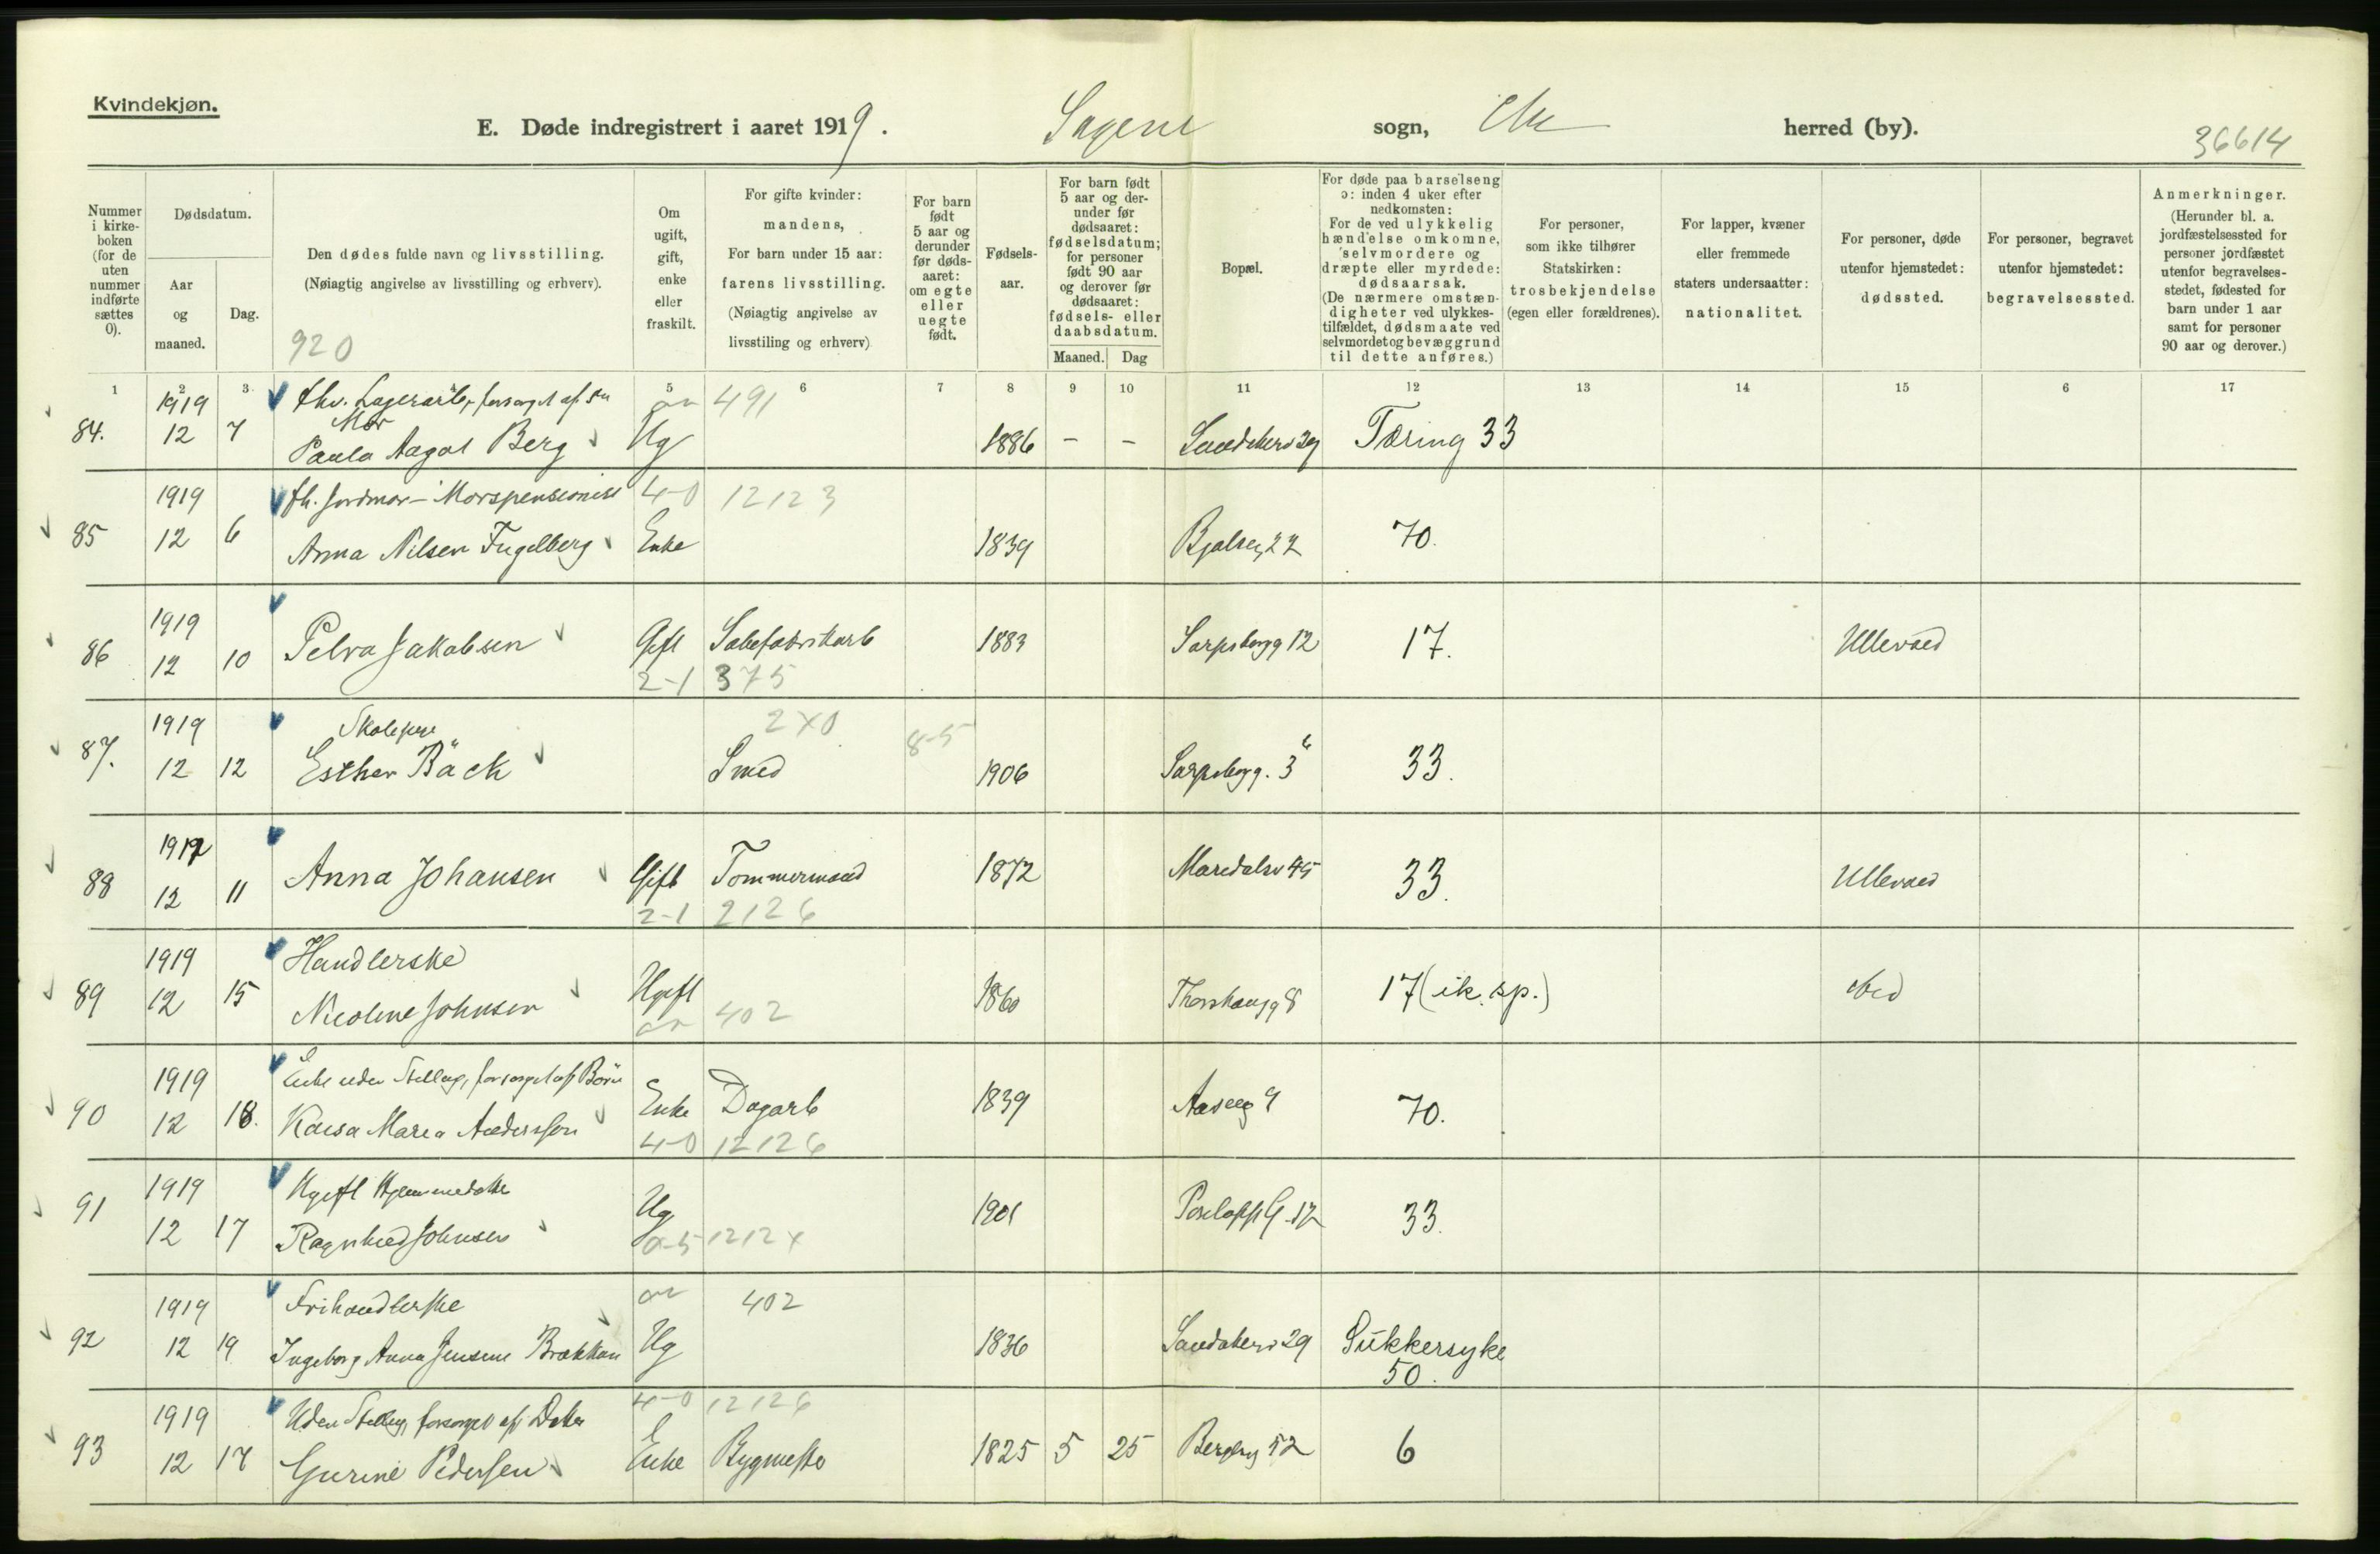 Kvindekjøn.
E. Døde indregistrert i aaret 1919. Sagene sogn, herred (by).
36614
Nummer i kirkeboken (for de uten nummer indførte sættes 0).
Dødsdatum.
Aar og maaned.
Dag.
Den dødes fulde navn og livsstilling.
(Nøiagtig angivelse av livsstilling og erhverv).
920
Om ugift, gift, enke eller fraskilt.
For gifte kvinder: mandens,
For barn under 15 aar: farens livsstilling.
(Nøiagtig angivelse av livsstiling og erhverv)
For barn født 5 aar og derunder før dødsaaret: om egte eller uegte født.
Fødselsaar.
For barn født 5 aar og derunder før dødsaaret: fødselsdatum; for personer født 90 aar og derover før dødsaaret: fødsels- eller daabsdatum.
Maaned. Dag
Bopæl.
For døde paa barselseng ɔ: inden 4 uker efter nedkomsten:
For de ved ulykkelig hændelse omkomne, selvmordere og dræpte eller myrdede: dødsaarsak.
(De nærmere omstændigheter ved ulykkestilfældet, dødsmaate ved selvmordet og bevæggrund til dette anføres.)
For personer, som ikke tilhører Statskirken: trosbekjendelse (egen eller forældrenes).
For lapper, kvæner eller fremmede staters undersaatter: nationalitet.
For personer, døde utenfor hjemstedet: dødssted.
For personer, begravet utenfor hjemstedet: begravelsessted.
Anmerkninger.
(Herunder bl. a. jordfæstelsessted for personer jordfæstet utenfor begravelsesstedet, fødested for barn under 1 aar samt for personer 90 aar og derover.)
1 2 3 5 6 7 8 9 10 11 12 13 14 15 6 17
1919 fhv. Lagerarb, forsørget af sin 491
Mor
84. 12 7 Paula Aagot Berg Ug 1886 - - Sandakerv 29 Tæring 33
1919 fh. Jordmor - Morspensionist 4-0 12123
85 12 6 Anna Nilsen Fugelberg Enke 1839 Bjølseg 22 70.
1919
86 12 10 Petra Jakobsen Gift Sæbefabrikarb 1883 Sarpsborgg 12 17. Ullevaal
2-1 375
1919 Skolepige 2X0 8-5
87. 12 12 Esther Bäck Smed 1906 Sarpsborgg. 3 33.
1919
88 12 11 Anna Johansen Gift Tømmermand 1872 Maridalsv 45 33. Ullevaal
2-1 2126
1919 Handlerske
89 12 15 Nicoline Johnsen Ugift 1860 Thorshaugg 8 17 (ik. sp.)
402
1919 Enke uden Stilling, forsørget af Børn
90 12 18. Kaisa Maria Andersson Enke Dagarb 1839 Aaseng 9 70.
4-0 12126
1919 Ugift Hjemmedatter
91 12 17 Ragnhild Johnsen Ug 1901 12 33.
0-5 1212X
1919 Frihandlerske 402
92 12 19 Ingeborg Anna Jensine Brækkan Ug 1836 Sandakerv 29 Sukkersyke
50.
1919 Uden Stilling, forsørget af Datter 4-0 12126
93 12 17 Gurine Pedersen Enke Bygmester 1825 5 25 52 6